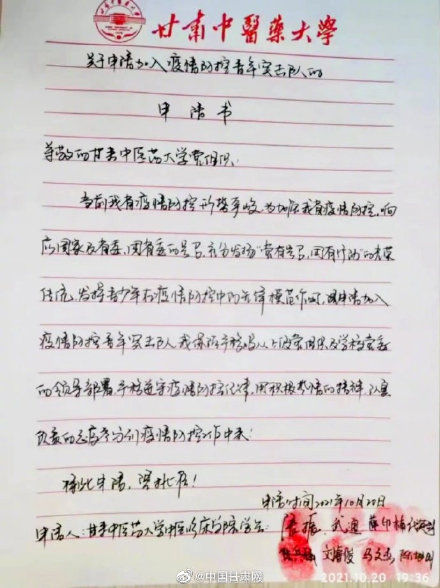 甘肃中医药大学
关于申请加入疫情防控青年突击队的
申请书
尊敬的甘肃中医药大学党组织:
当前我省疫情防控形势严峻,为加强我省疫情防控,响
应国家及省委、团省委的号召,充分发扬“党有号召,团有行动”的光荣
传统,发挥青少年在疫情防控中的先锋模范作用,我申请加入
疫情防控青年突击队,我保证严格听从上级党团组织及学校党委
的领导部署,严格遵守疫情防控纪律,用积极热情的精神,认真
负责的态度参与到疫情防控工作中来!
特此申请,望批准!
申请时间2021年10月20日
申请人:甘肃中医药大学中医临床学院学生:
武迪
@中国甘肃网
2021.10.20 19:36